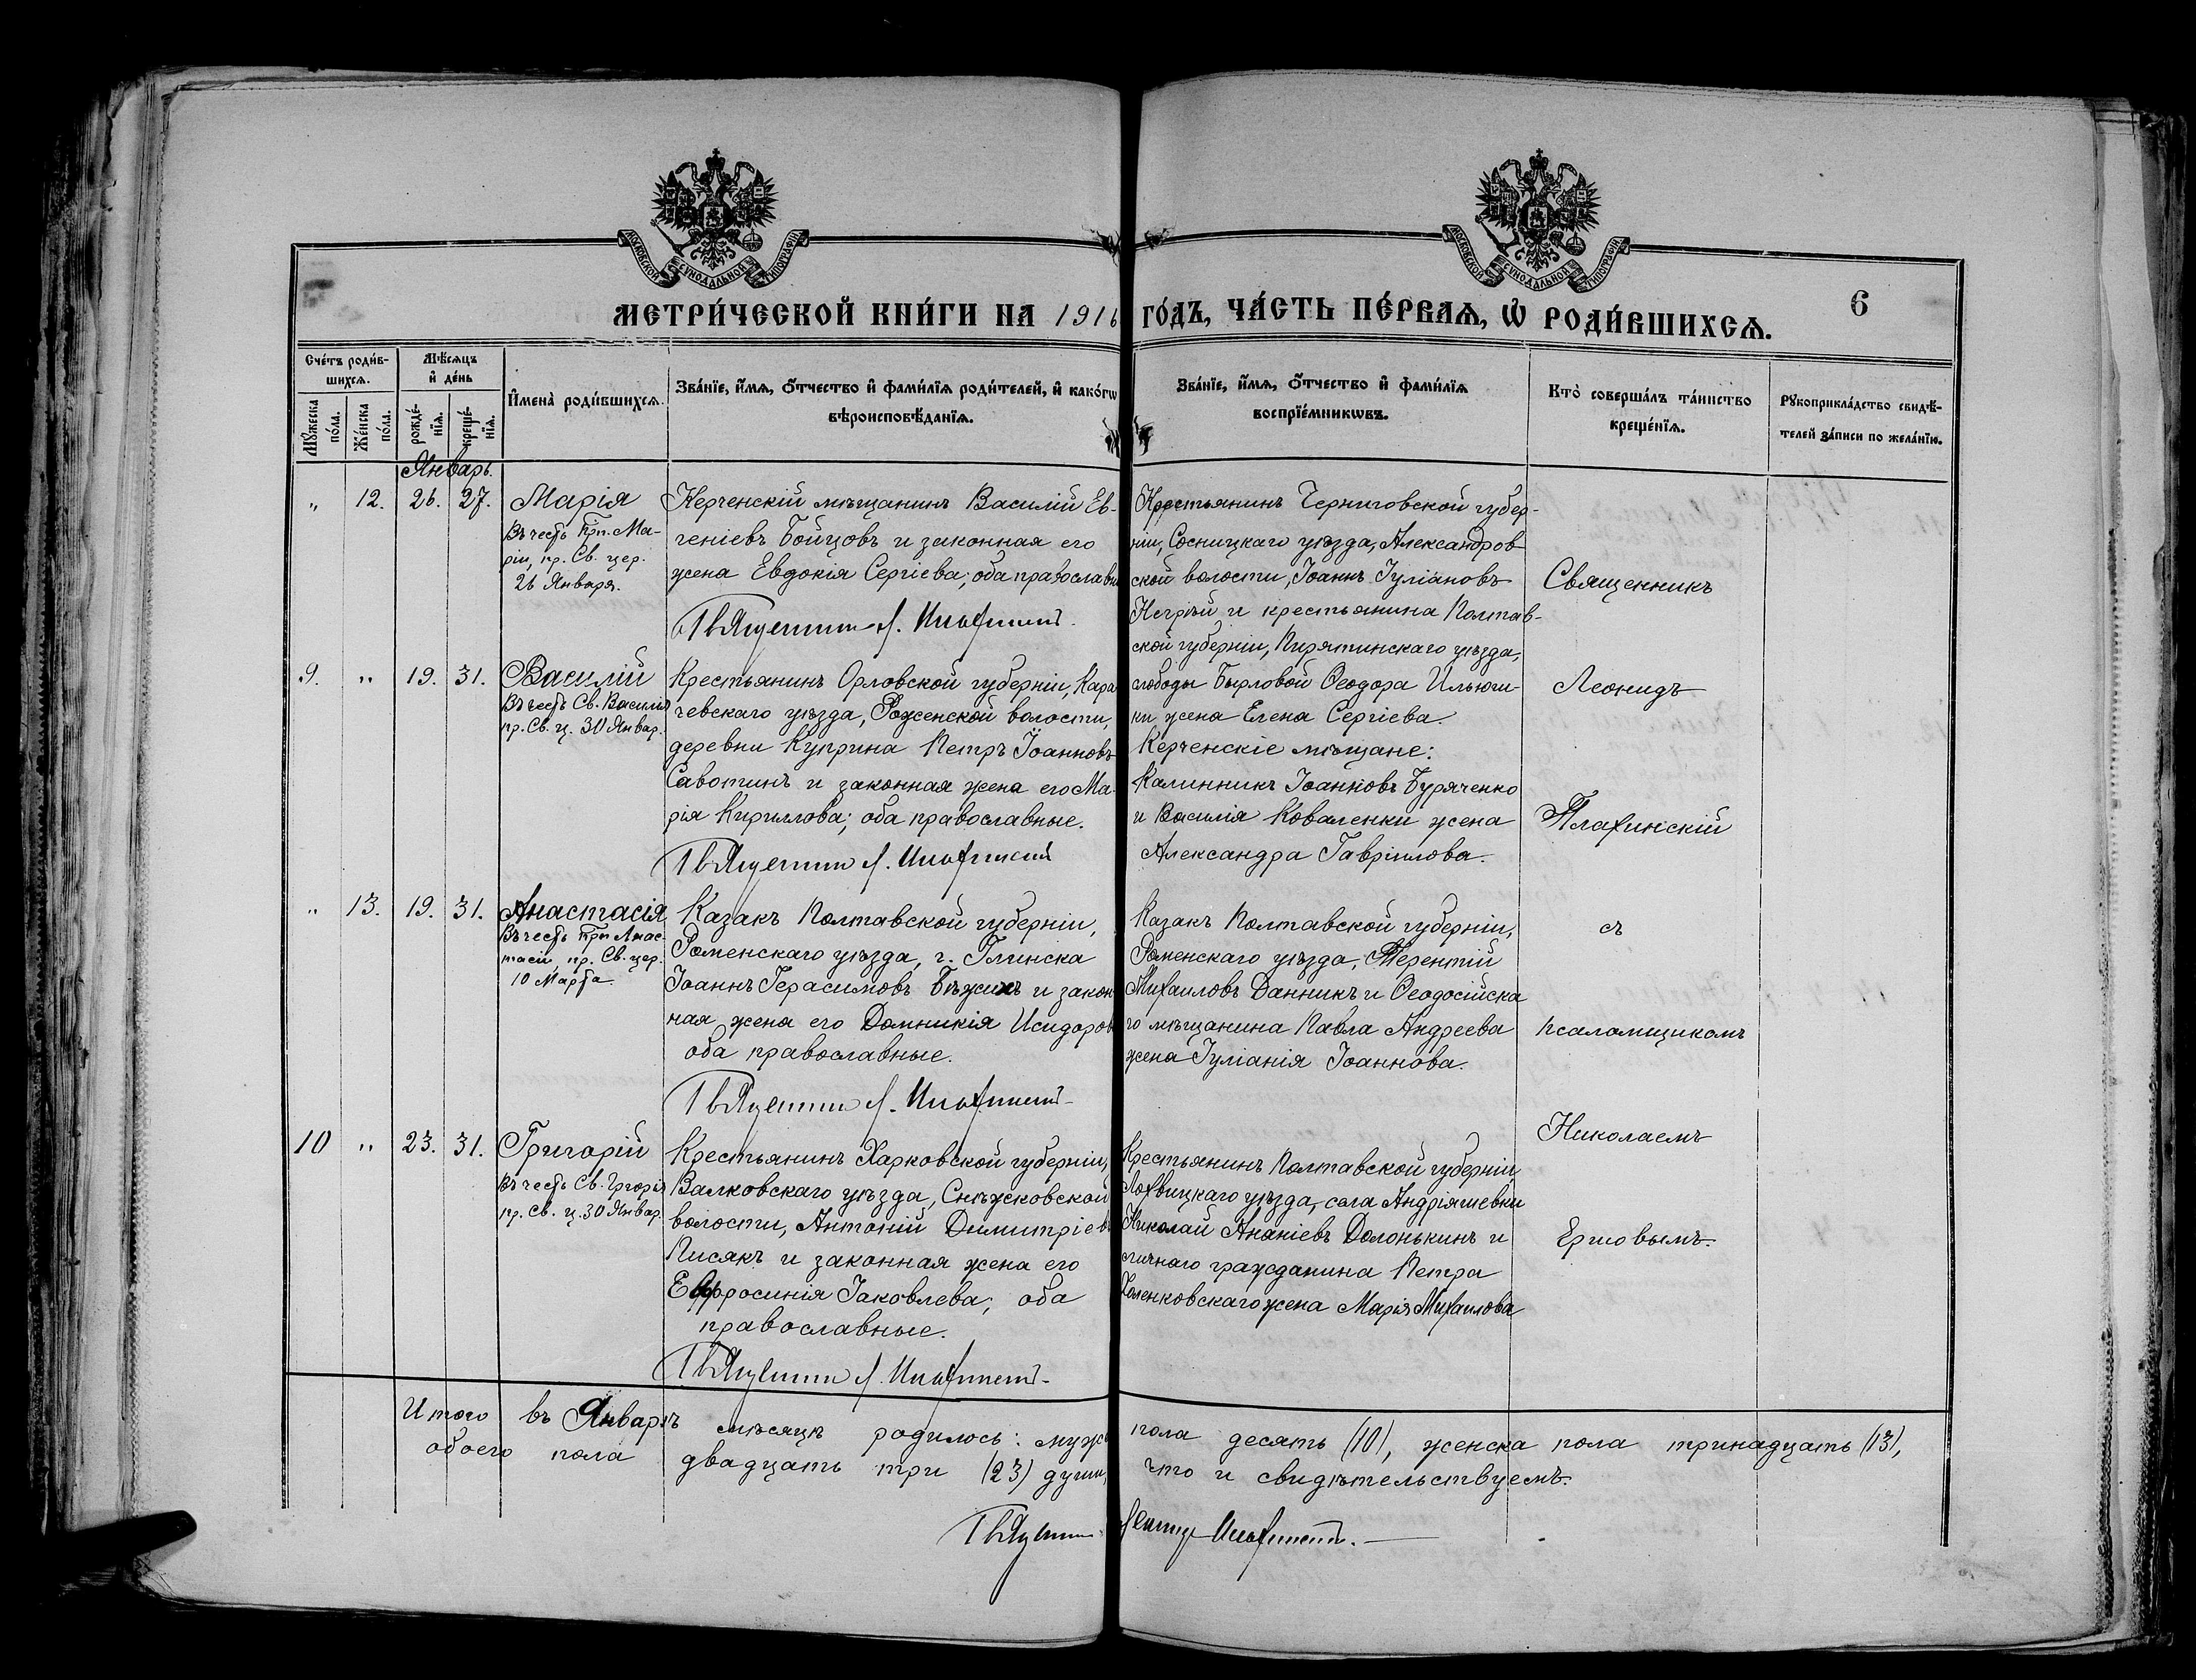 МОСКОВСКОЙ СѴНОДАЛЬНОЙ ТИПОГРАФІИ
МОСКОВСКОЙ СѴНОДАЛЬНОЙ ТИПОГРАФІИ
МЕТРИ́ЧЕСКОЙ КНИ́ГИ НА 1916 ГО́ДЪ, ЧА́СТЬ ПЕ́РВАѦ, Ѡ҆ РОДИ́ВШИХСѦ.
6
Сче́тъ роди́в-
шихсѧ.
Мꙋ́жеска по́ла.
Же́нска по́ла.
Мѣ́сѧцъ
и҆ де́нь
рожде́-
нїѧ.
креще́-
нїѧ.
И҆мена̀ роди́вшихсѧ.
Зва́нїе, и҆́мѧ, ѻ҆́тчество и҆ фами́лїѧ роди́телей, и҆ како́гѡ
вѣроисповѣ́данїѧ.
Зва́нїе, и҆́мѧ, ѻ҆́тчество и҆ фами́лїѧ
воспрїе́мникѡвъ.
Кто̀ соверша́лъ та́инство
креще́нїѧ.
Рꙋкоприкла́дство свидѣ́-
телей за́писи по жела́нїю.
Январь.
„ 12. 26. 27. Марія
Въ честь Прп. Ма-
ріи, пр. Св. цер.
26 Января.
Керченскій мѣщанинъ Василій Ев-
геніевъ Бойцовъ и законная его
жена Евдокія Сергіева; оба православн
Священникъ Л.
Крестьянинъ Черниговской губер-
ніи, Сосницкаго уѣзда, Александров-
ской волости, Іоаннъ Іуліановъ
и крестьянина Полтав-
ской губерніи, Пирятинскаго уѣзда,
слободы Бырловой Ѳеодора Ильюши-
ки жена Елена Сергіева.
9. „ 19. 31. Василій
Въ честь Св. Василія
пр. Св. ц. 30 Январ.
Крестьянинъ Орловской губерніи, Кара
чевскаго уѣзда, Рженской волости,
деревни Куприна Петръ Іоанновъ
Савотинъ и законная жена его Ма-
рія Кириллова; оба православные.
Священникъ Л.
Керченскіе мѣщане:
Калинникъ Іоанновъ Буряченко
и Василія Коваленки жена
Александра Гавріилова.
„ 13. 19. 31. Анастасія
Въ честь Прп. Анас-
тасіи, пр. Св. цер.
10 Марта
Казакъ Полтавской губерніи,
Роменскаго уѣзда, г. Глинска
Іоаннъ Герасимовъ и закон
ная жена его Домникія Исидоров
оба православные.
Священникъ Л.
Казакъ Полтавской губерніи,
Роменскаго уѣзда, Терентій
Михаиловъ Данникъ и Ѳеодосійска
го мѣщанина Павла Андреева
жена Іуліанія Іоаннова.
10 „ 23. 31. Григорій
Въ честь Св. Григорія
пр. Св. ц. 30 Январ.
Крестьянинъ Харковской губерніи,
Валковскаго уѣзда, Снѣжковской
волости, Антоній Димитріев
Писякъ и законная жена его
Евфросинія Іаковлева; оба
православные.
Священникъ Л.
Крестьянинъ Полтавской губерніи
Лохвицкаго уѣзда, села Андріяшевки
Николай Ананіевъ Долонькинъ и
личнаго гражданина Петра
жена Марія Михаилова
Священникъ
Леонидъ
съ
псаломщикомъ
Николаемъ
Ершовымъ.
Итого въ Январѣ мѣсяцѣ родилось: мужс пола десять (10), женска пола тринадцать (13),
обоего пола двадцать три (23) души, что и свидѣтельствуемъ.
Священникъ Леонидъ